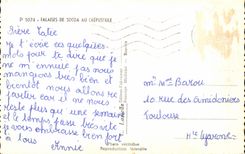 D 5074 - FALAISES DE SODDA AU CRÉPUSCULE
Chère Tatee
Je t'écris ces quelques
mots pour te dire que je
ne m'ennuie pas nous
mangeons très bien et
bientôt nous allons re
partir car il ne nous
reste plus qu'une semaine
et le temps passe très vite
je vous embrasse bien fort
à tous Annie
Mr Mme Barou
10 rue des Amidonniers
Toulouse
Hte Garonne
Reproduction interdite